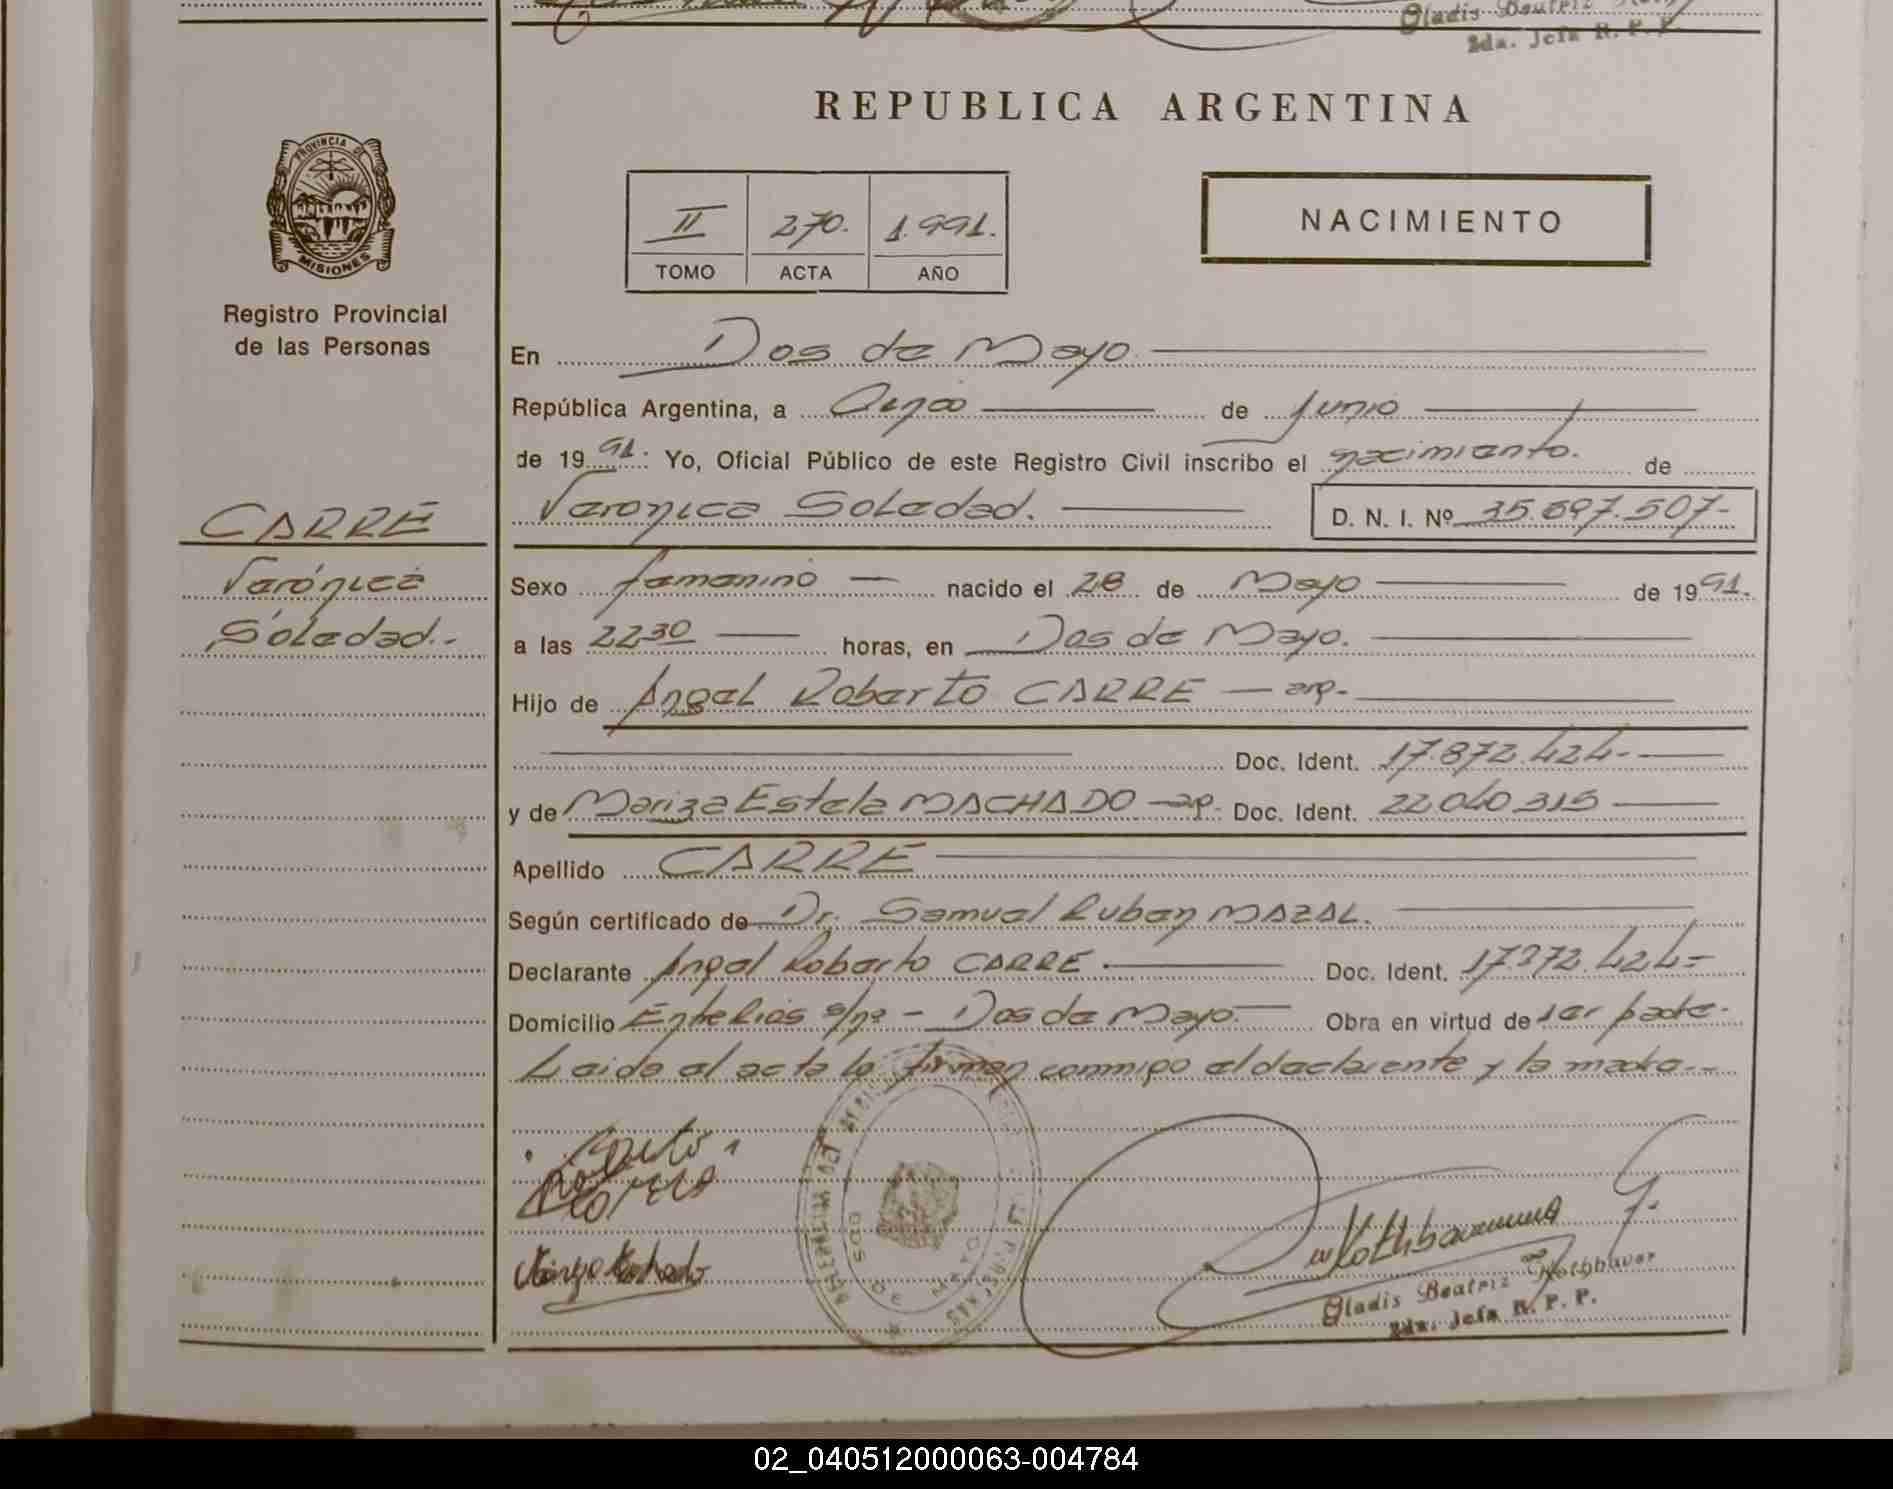 Gladis Beatriz
2da. Jefa R. P. P.
REPUBLICA ARGENTINA
PROVINCIA DE
MISIONES
Registro Provincial
de las Personas
II 270. 1.991.
TOMO ACTA AÑO
NACIMIENTO
En Dos de Mayo.
República Argentina, a Once de Junio
de 19 91. Yo, Oficial Público de este Registro Civil inscribo el nacimiento. de
Veronica Soledad. D. N. I. Nº 35.697.507-
CARRÉ
Verónica
Soledad.-
Sexo femenino nacido el 28 de Mayo de 19 91.
a las 22 30 horas, en Dos de Mayo.
Hijo de Angel Roberto CARRE - arg.-
Doc. Ident. 17.872.424-
y de Mariza Estela MACHADO - arg. Doc. Ident. 22.040.315
Apellido CARRE
Según certificado de Dr. Samuel Ruben MAZAL.
Declarante Angel Roberto CARRE. Doc. Ident. 17.872.424-
Domicilio s/nº - Dos de Mayo. Obra en virtud de ser padre.
Leida el acta la firman conmigo el declarente y la madre.--
Mariza Machado
DOS DE MAYO
Gladis Beatriz Rothbaver
2da. Jefa R. P. P.
02_040512000063-004784